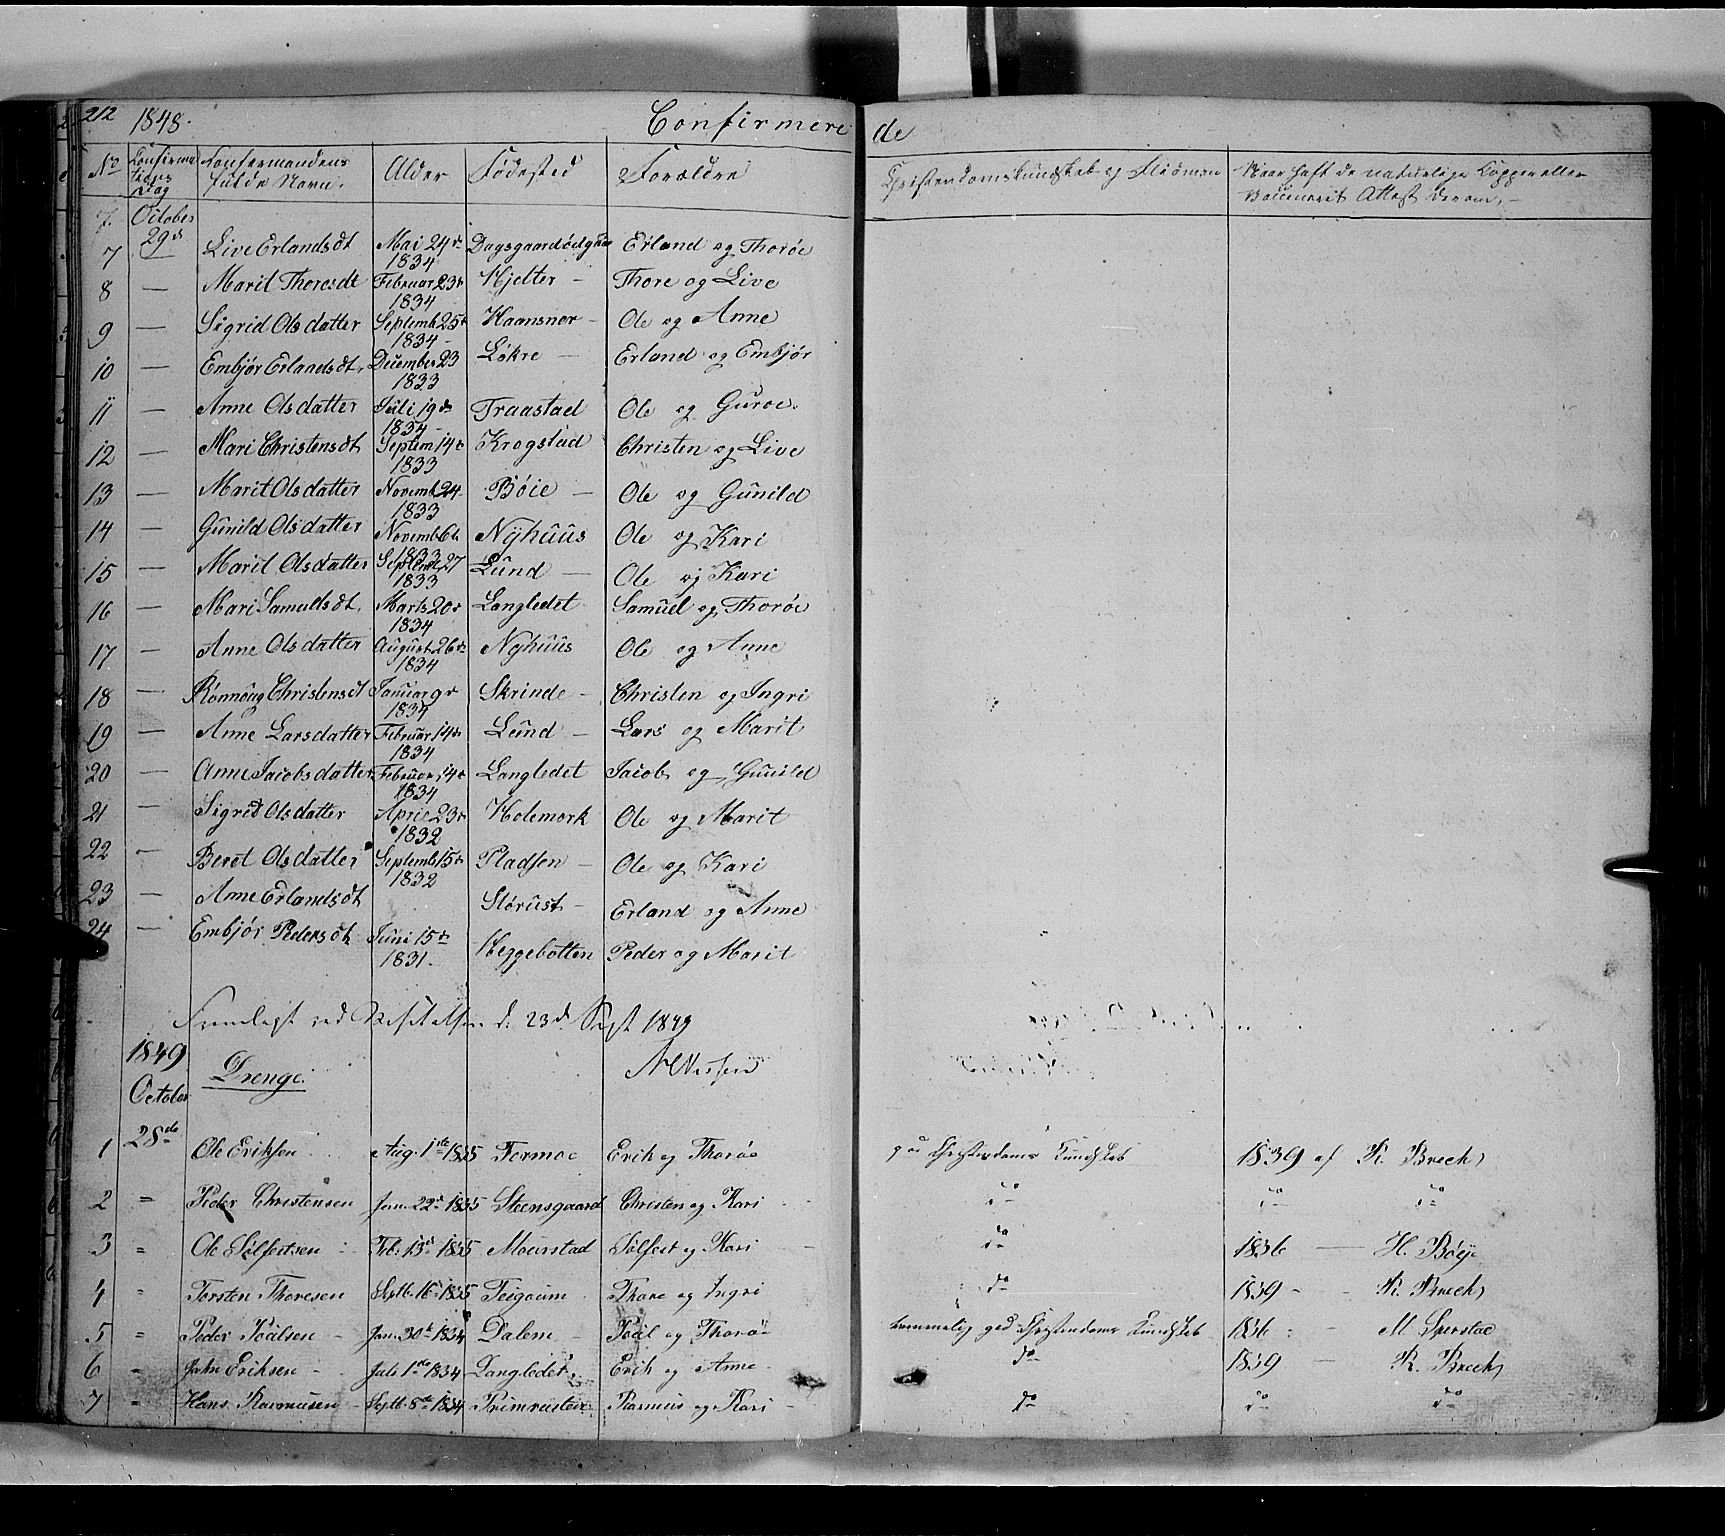 212 1848. Confirmere de
No Confirmations Dag Confermandens fulde Navn. Alder Fødested Forældre Christendomskundskab og Flid Naar haft de naturlige Kopper eller Vaccineret Attest derom.
7. October
7 29de Live Erlandsdt Mai 24de 1834 Dagsgaardødegaar Erland og Thorøe
8 — Marit Thoresdt Februar 23de 1834 Hjelter — Thore og Live
9 — Sigrid Olsdatter Septemb 25de 1834 - Haansnar - Ole og Anne
10 — Embjør Erlandsdt. December 23 1833 Løkre — Erland og Embjør
11 — Anne Olsdatter Juli 19de 1834 - Traastad Ole og Guroe.
12 — Mari Christensdt Septem 14de 1833 Krogstad Christen og Live
13 — Marit Olsdatter Novemb 24 1833 Bøie — Ole og Gunild
14 — Gunild Olsdatter Novemb 6te 1833 Nyhuus Ole og Kari
15 — Marit Olsdatter Septemb 27 1833 Lund — Ole og Kari
16 — Mari Samuelsdt. Marts 20de 1834 Langledet Samuel og Thorøe
17 — Anne Olsdatter August 26de 1834 Nyhuus Ole og Anne
18 — Rønnoug Christensdt Januar 9de 1834 Skrinde - Christen og Ingri
19 — Anne Larsdatter Februar 14de 1834 Lund — Lars og Marit
20 — Anne Jacobsdatter Februar 14de 1834 Langledet Jacob og Gunild
21 — Sigrid Olsdatter April 23de 1832 Holemork Ole og Marit
22 — Beret Olsdatter Septemb 15de 1832 Pladsen — Ole og Kari
23 — Anne Erlandsdt Storust - Erland og Anne
24 — Embjør Pedersdt Juni 15de 1831. Heggebotten Peder og Marit
Fremlagt ved Visitatsen d. 23d Sept 1849
1849 Drenge.
October
1 28de Ole Eriksen Aug. 1ste 1835 Formoe Erik og Thorøe god Christendoms Kundskab 1839 af R. Brech
2 " Peder Christensen Jan. 22de 1835 Steensgaard Christen og Kari do do do
3 " Ole Sølfestsen Feb. 13de 1835 Mourstad Sølfest og Kari do 1836 — H. Bøye
4 " Torsten Thoresen Septb. 16de 1835 Teigaum Thore og Ingri do 1839 - R. Brech
5 " Peder Poulsen - Jan. 30te 1834 Dalem - Poul og Thorøe temmelig god Christendoms Kundskab 1836 - M
6 " John Eriksen - Juli 1ste 1834 Langledet Erik og Anne do 1839 — R. Brech
7 " Hans Rasmusen Septb. 8de 1834 Rasmus og Kari - do do do